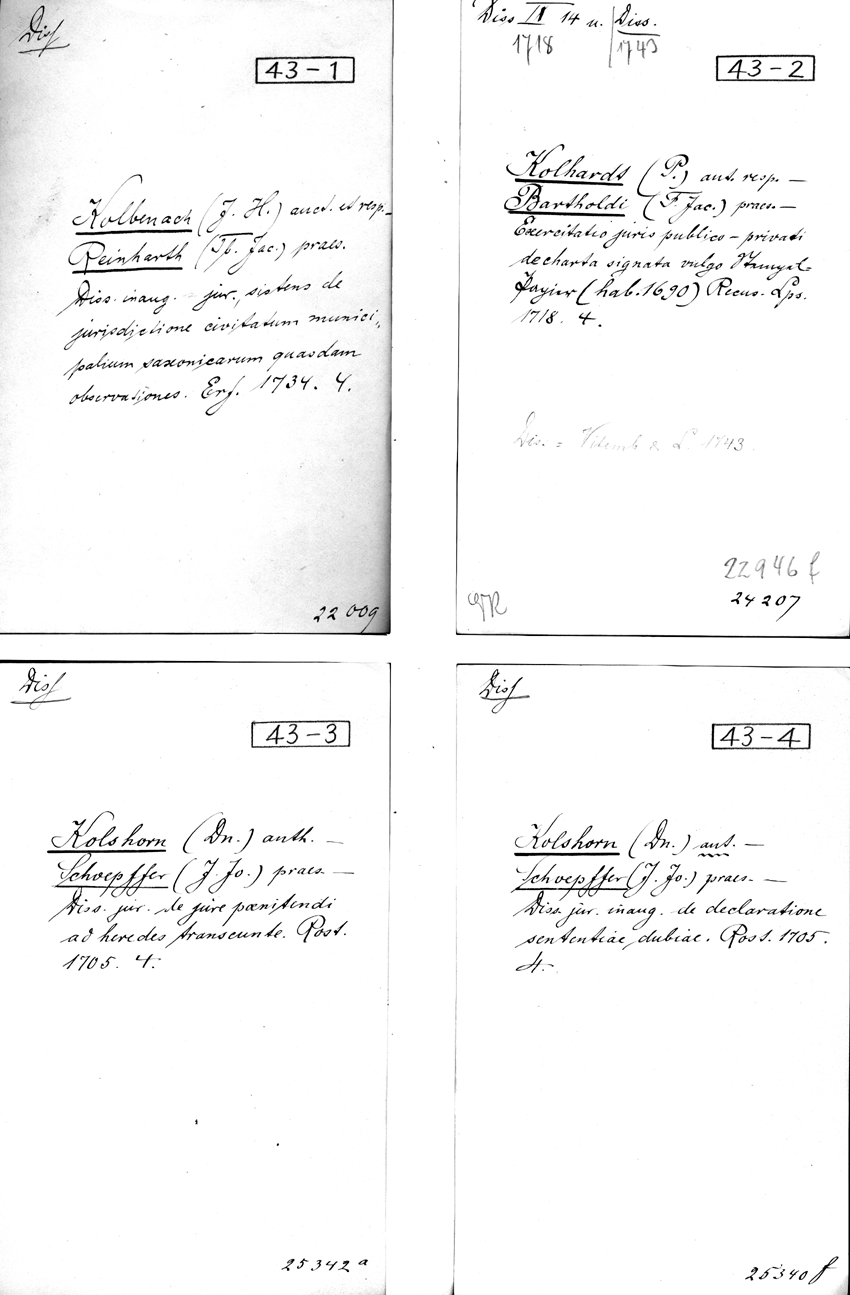 Diss
43-1
Kolbenach (J. H.) auct. et resp. –
Reinharth (Tb. Jac.) praes.
Diss. inaug. jur., sistens de
jurisdictione civitatum munici,
palium saxonicarum quasdam
observationes. Erf. 1734. 4.
22 009
Diss II 14 u. Diss.
1718 1743
43-2
Kolhardt (P.) aut. resp. –
Bartholdi (F. Jac.) praes. –
Exercitatio juris publico-privati
de charta signata vulgo Stempel-
Papier (hab. 1690) Recus. Lps.
1718. 4.
Dis. = Vitemb & L. 1743.
22946 f
24207
Diss
43-3
Kolshorn (Dn.) auth. –
Schoepffer (J. Jo.) praes. –
Diss. jur. de jure poenitendi
ad heredes transeunte. Rost.
1705. 4.
25342 a
Diss
43-4
Kolshorn (Dn.) aut. –
Schoepffer (J. Jo.) praes. –
Diss. jur. inaug. de declaratione
sententiae dubiae. Rost. 1705.
4.
25340 f